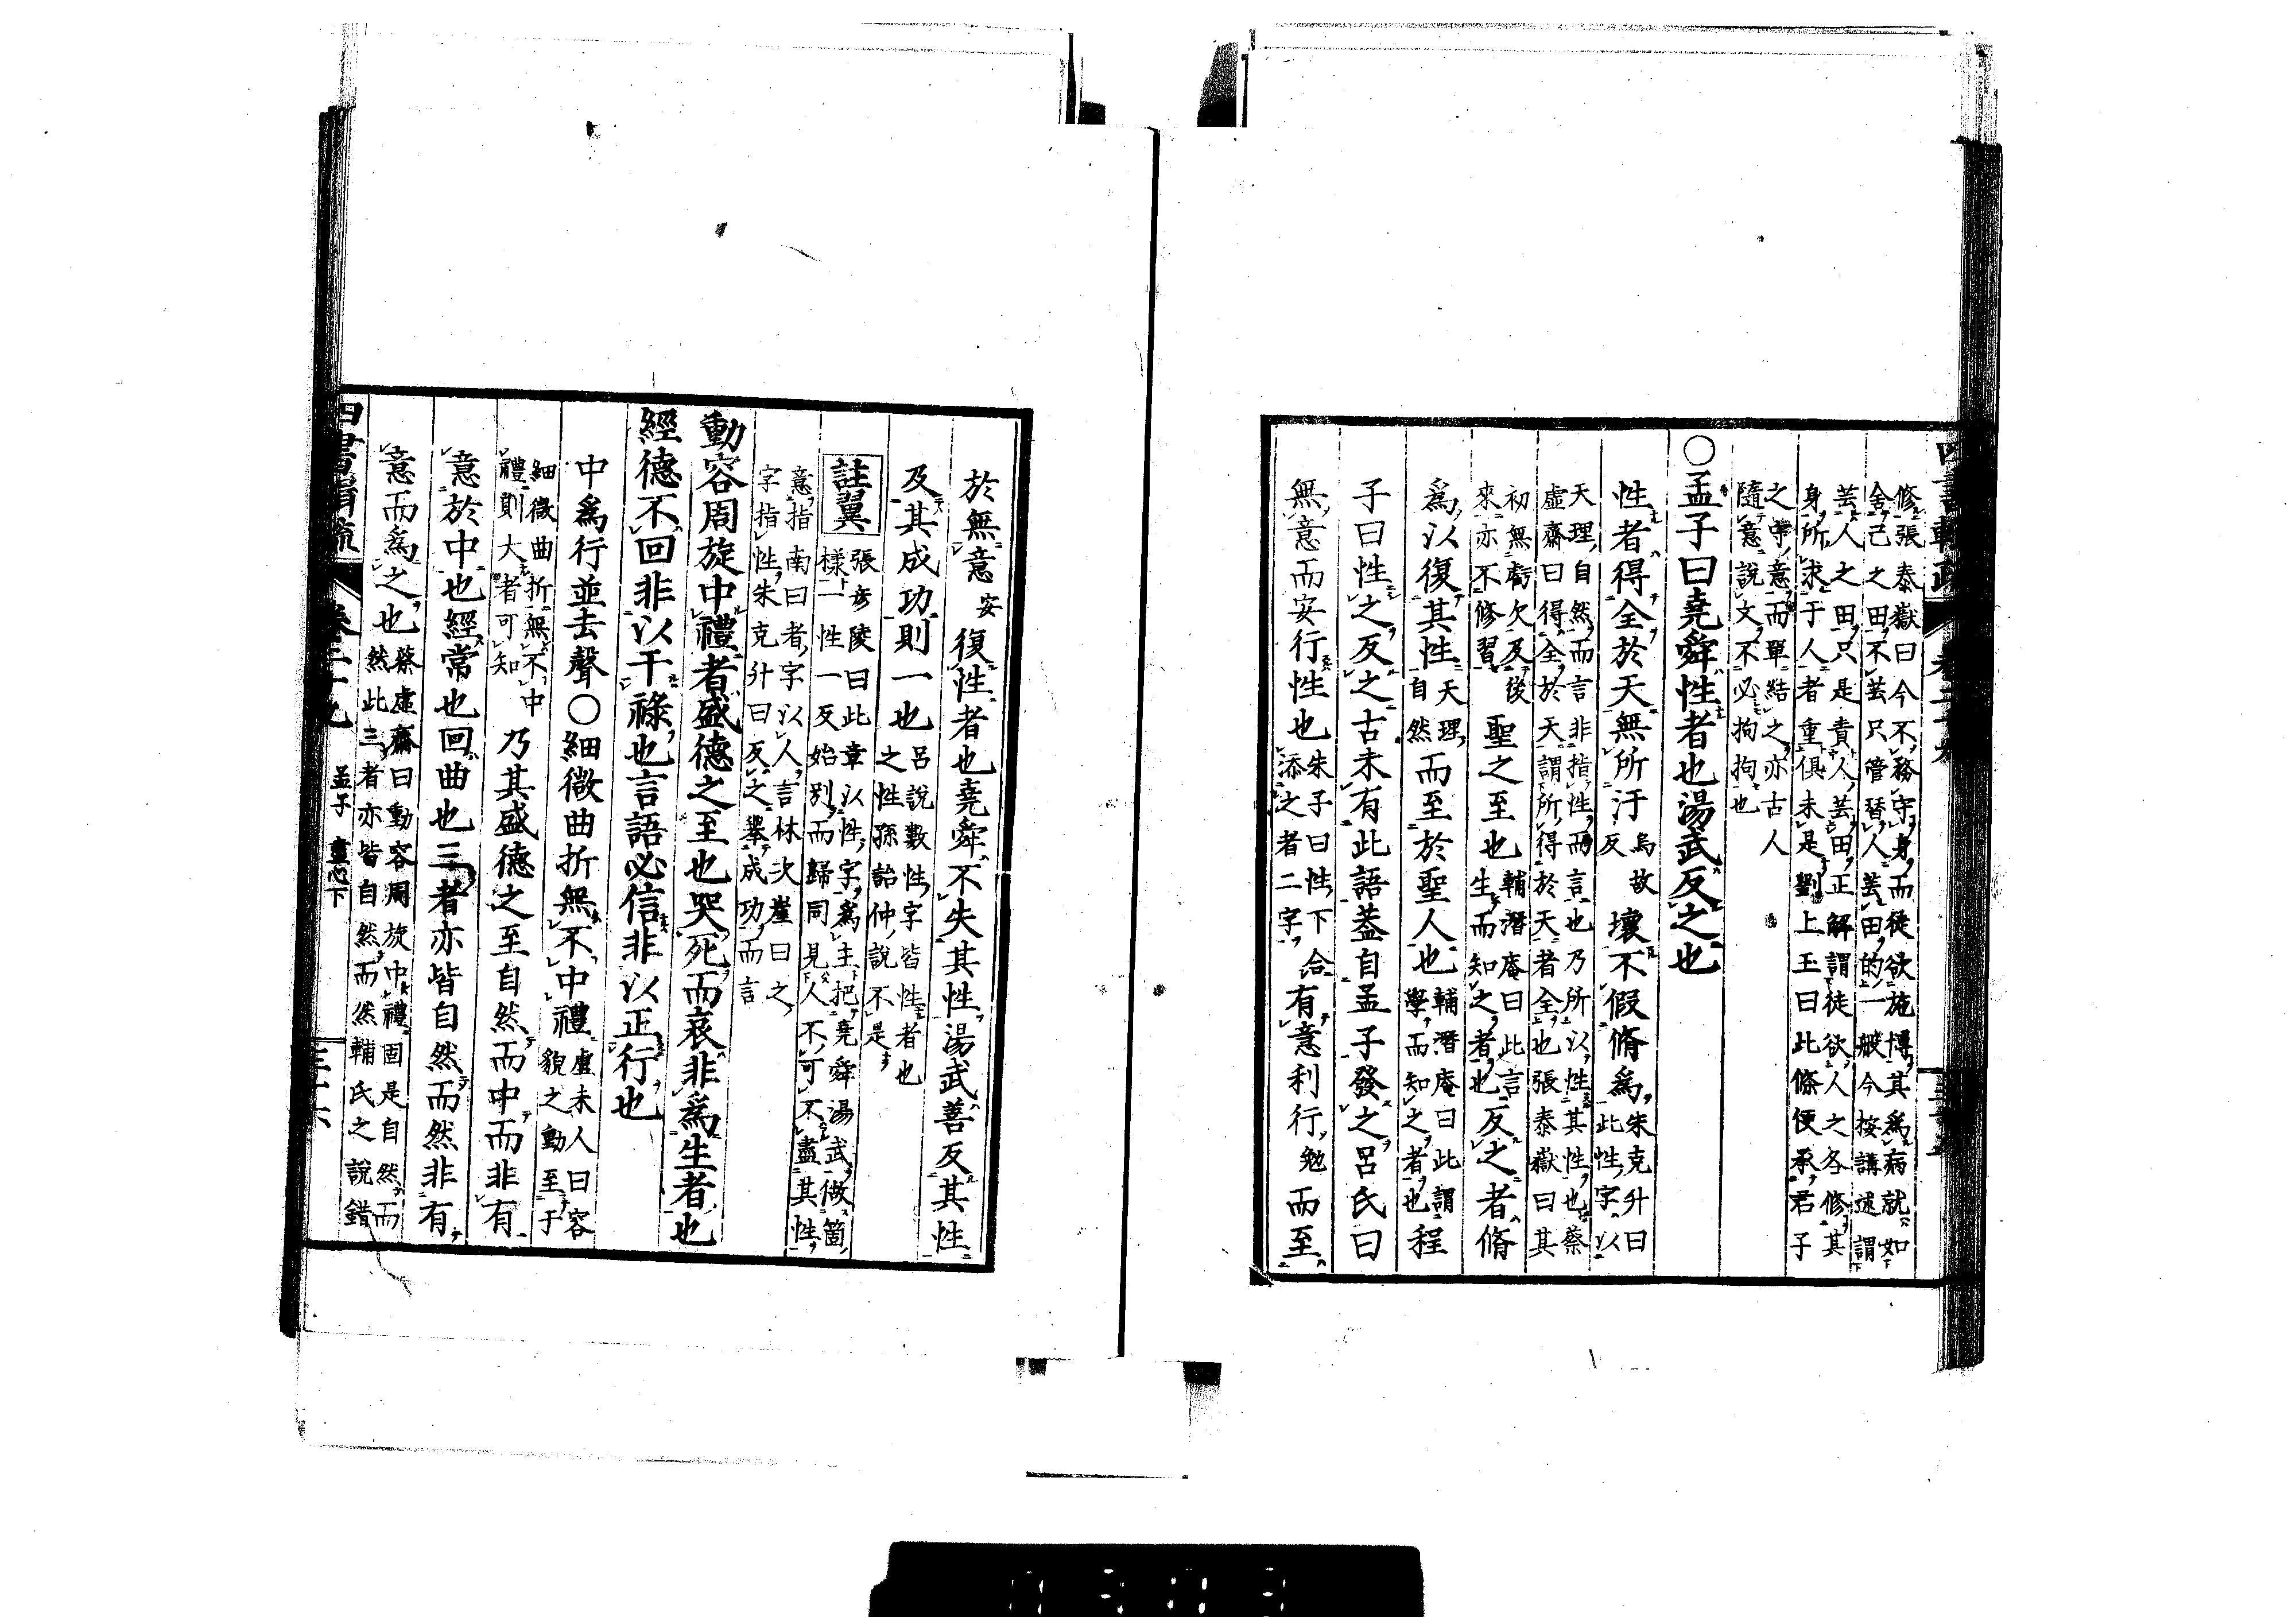 修張泰嶽曰今不務守身而徒欲施博其爲病就如
舍己之田不芸只管替人芸田的一般今按講述謂
芸人之田只是責人芸田正解謂徒欲人之各修其
身所求于人者重俱未是劉上玉曰此條便承君子
之守意而單結之亦古人
隨意說文不必拘拘也
○孟子曰堯舜性者也湯武反之也
性者得全於天無所汙烏故反壞不假脩爲朱克升曰此性字以
天理自然而言非指性而言也乃所以性其性也蔡
虛齋曰得全於天謂所得於天者全也張泰嶽曰其
初無虧欠及後
來亦不修習
聖之至也輔潛庵曰此言生而知之者也反之者脩
爲以復其性天理自然而至於聖人也輔潛庵曰此謂學而知之者也程
子曰性之反之古未有此語蓋自孟子發之呂氏曰
無意而安行性也朱子曰性下合添之者二字有意利行勉而至
於無意安復性者也堯舜不失其性湯武善反其性
及其成功則一也呂說數性字皆性者也之性孫詒仲說不是
註翼
張彥陵曰此章以性字爲主把堯舜湯武做箇
樣一性一反始別而歸同見人不可不盡其性
意指南曰者字以人言林次崖曰之
字指性朱克升曰反之舉成功而言
動容周旋中禮者盛德之至也哭死而哀非爲生者也
經德不回非以干祿也言語必信非以正行也
中爲行並去聲○細微曲折無不中禮盧未人曰容貌之動至于
細微曲折無不中
禮則大者可知
乃其盛德之至自然而中而非有
意於中也經常也回曲也三者亦皆自然而然非有
意而爲之也蔡虛齋曰動容周旋中禮固是自然而
然此三者亦皆自然而然輔氏之說錯
四書 疏 卷二十九 孟子 盡心下 三十六